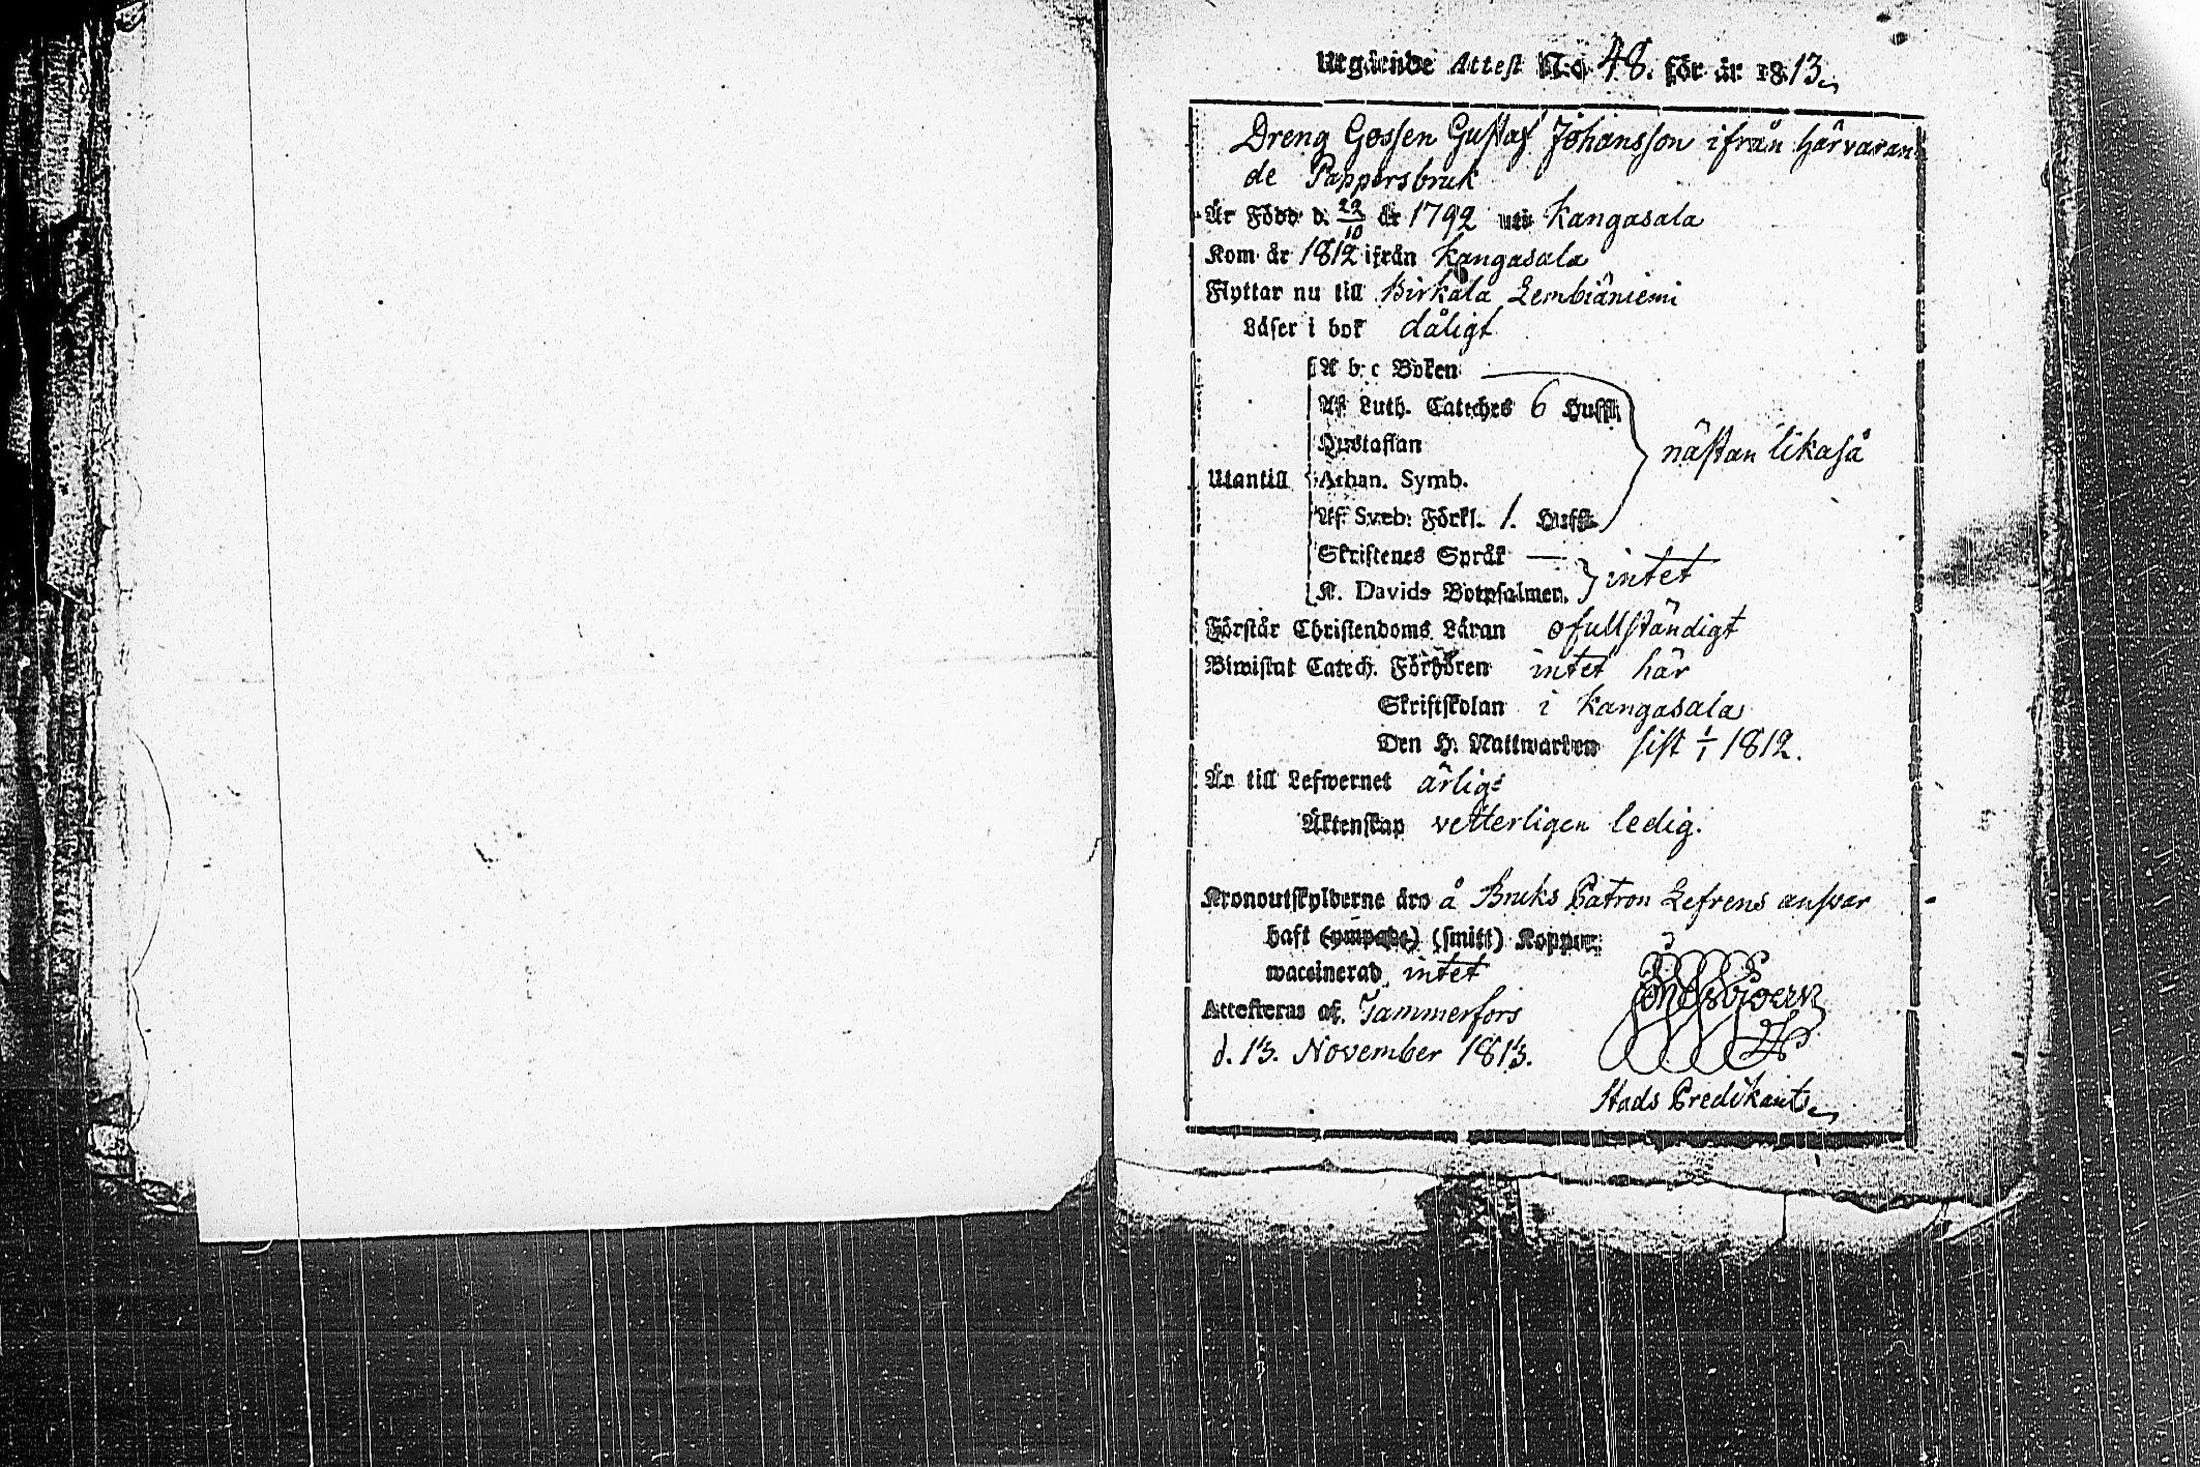 Utgående Attest N:o 48. för år 1813.
Dreng Gossen Gustaf Johansson ifrån härvaran
de Pappersbruk
Är Född d. 22/10 år 1792 uti Kangasala
Kom år 1812 ifrån Kangasala
Flyttar nu till Birkala Lembiäniemi
Läser i bok dåligt
A b c Boken
Af Luth. Cateches 6 Hufst.
Hustaflan
nästan likaså
Utantill Athan. Symb.
Af Sveb. Förkl. 1. Hufst.
Skriftenes Språk —
intet
K. Davids Botpsalmer.
Förstår Christendoms Läran ofullständigt
Biwistat Catech. Förhören intet här
Skriftskolan i Kangasala
Den H. Nattwarden sist 1/1 1812.
Är till Lefwernet ärlig
Äktenskap vetterligen ledig.
Kronoutskylderne äro å Bruks Patron Lefrens answar
haft (ympade) (smitt) Koppor
waccinerad intet
Attesteras af. Tammerfors
d. 13. November 1813.
Stads Predikant